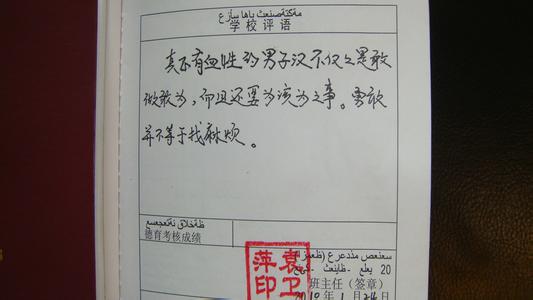 学校评语
真正有血性的男子汉不仅仅是敢
做敢为，而且还要为该为之事。勇敢
并不等于找麻烦。
德育考核成绩
袁卫
萍印
班主任（签章）
2010年1月24日